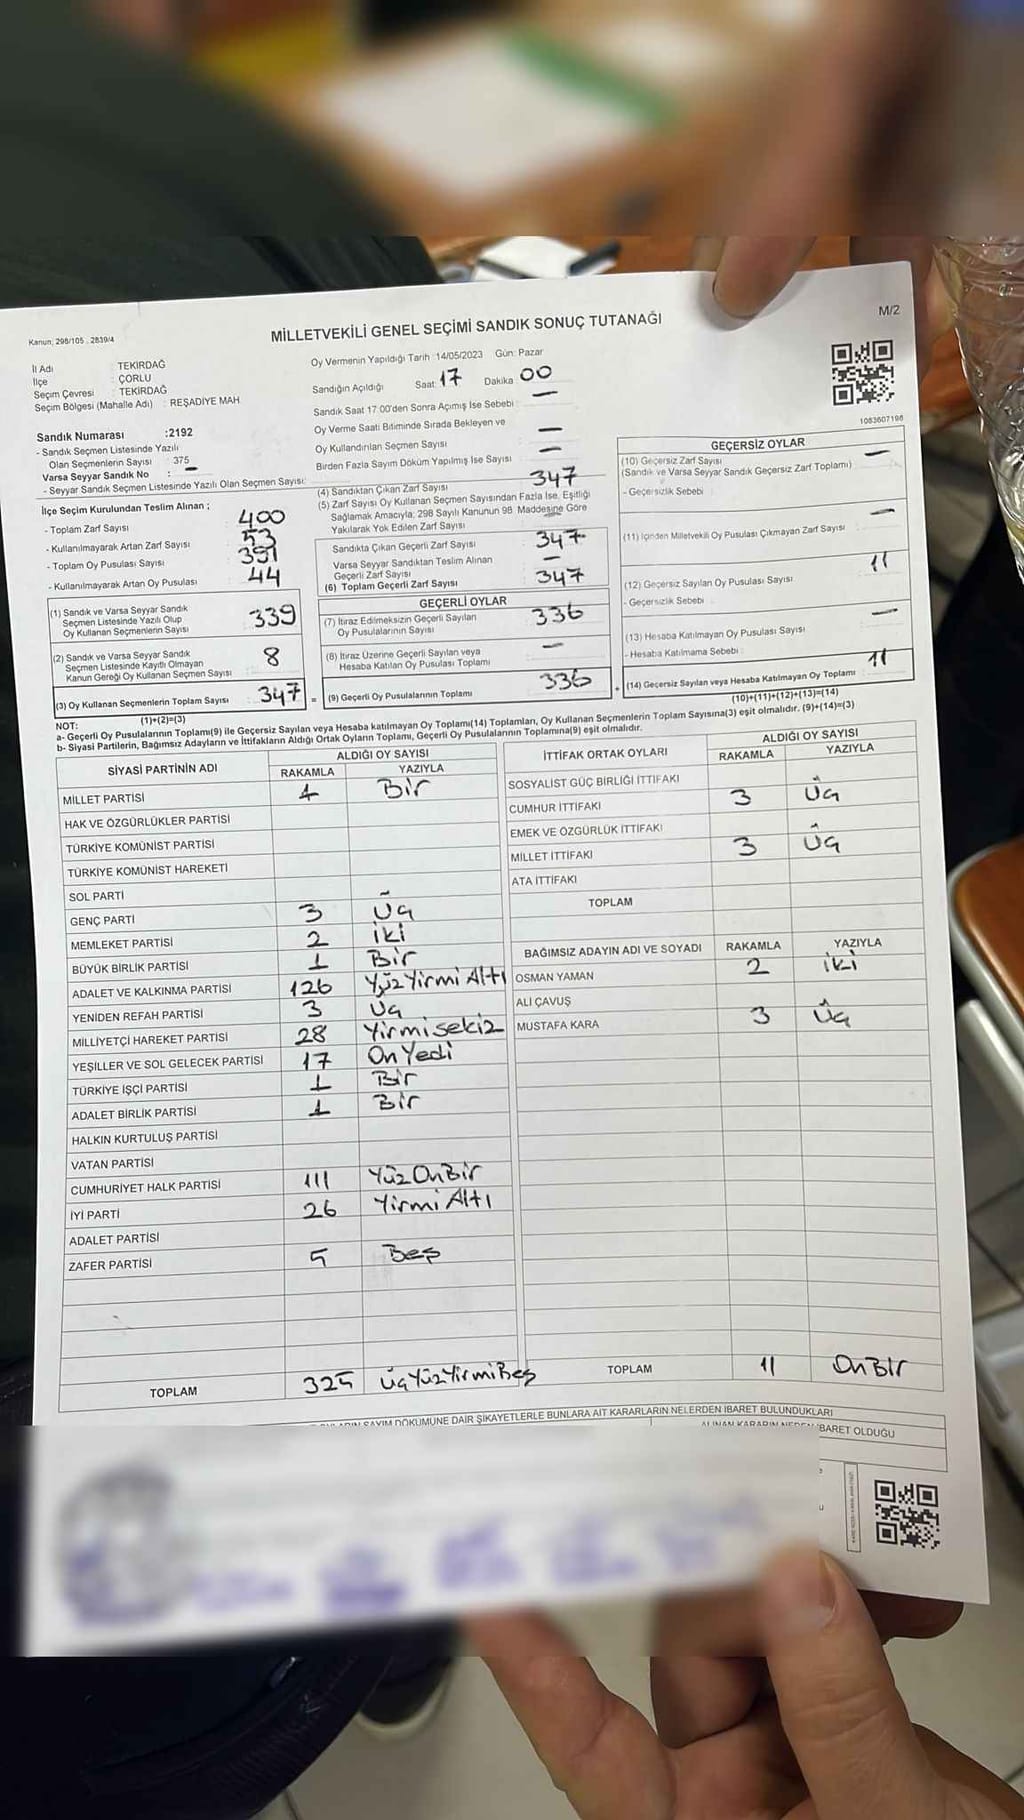 M/2
MİLLETVEKİLİ GENEL SEÇİMİ SANDIK SONUÇ TUTANAĞI
Kanun; 298/105 . 2839/4
İl Adı TEKİRDAĞ
İlçe ÇORLU
Seçim Çevresi : TEKİRDAĞ
Seçim Bölgesi (Mahalle Adı) : REŞADİYE MAH
Sandık Numarası :2192
- Sandık Seçmen Listesinde Yazılı
Olan Seçmenlerin Sayısı : 375
Varsa Seyyar Sandık No : –
- Seyyar Sandık Seçmen Listesinde Yazılı Olan Seçmen Sayısı:
Oy Vermenin Yapıldığı Tarih :14/05/2023 Gün: Pazar
Sandığın Açıldığı Saat: 17 Dakika 00
Sandık Saat 17:00'den Sonra Açımış İse Sebebi : –
Oy Verme Saati Bitiminde Sırada Bekleyen ve
Oy Kullandırılan Seçmen Sayısı –
Birden Fazla Sayım Döküm Yapılmış İse Sayısı –
1083607196
İlçe Seçim Kurulundan Teslim Alınan ;
- Toplam Zarf Sayısı 400
- Kullanılmayarak Artan Zarf Sayısı 53
- Toplam Oy Pusulası Sayısı 391
- Kullanılmayarak Artan Oy Pusulası 44
(1) Sandık ve Varsa Seyyar Sandık
Seçmen Listesinde Yazılı Olup
Oy Kullanan Seçmenlerin Sayısı 339
(2) Sandık ve Varsa Seyyar Sandık
Seçmen Listesinde Kayıtlı Olmayan
Kanun Gereği Oy Kullanan Seçmen Sayısı 8
(3) Oy Kullanan Seçmenlerin Toplam Sayısı 347 =
(1)+(2)=(3)
(4) Sandıktan Çıkan Zarf Sayısı 347
(5) Zarf Sayısı Oy Kullanan Seçmen Sayısından Fazla İse, Eşitliği
Sağlamak Amacıyla; 298 Sayılı Kanunun 98. Maddesine Göre
Yakılarak Yok Edilen Zarf Sayısı –
Sandıkta Çıkan Geçerli Zarf Sayısı 347
Varsa Seyyar Sandıktan Teslim Alınan
Geçerli Zarf Sayısı –
(6) Toplam Geçerli Zarf Sayısı 347
GEÇERLİ OYLAR
(7) İtiraz Edilmeksizin Geçerli Sayılan
Oy Pusulalarının Sayısı 336
(8) İtiraz Üzerine Geçerli Sayılan veya
Hesaba Katılan Oy Pusulası Toplamı –
(9) Geçerli Oy Pusulalarının Toplamı 336 +
GEÇERSİZ OYLAR
(10) Geçersiz Zarf Sayısı –
(Sandık ve Varsa Seyyar Sandık Geçersiz Zarf Toplamı)
- Geçersizlik Sebebi :
(11) İçinden Milletvekili Oy Pusulası Çıkmayan Zarf Sayısı –
(12) Geçersiz Sayılan Oy Pusulası Sayısı 11
- Geçersizlik Sebebi :
(13) Hesaba Katılmayan Oy Pusulası Sayısı –
- Hesaba Katılmama Sebebi :
(14) Geçersiz Sayılan veya Hesaba Katılmayan Oy Toplamı 11
(10)+(11)+(12)+(13)=(14)
NOT:
a- Geçerli Oy Pusulalarının Toplamı(9) ile Geçersiz Sayılan veya Hesaba katılmayan Oy Toplamı(14) Toplamları, Oy Kullanan Seçmenlerin Toplam Sayısına(3) eşit olmalıdır. (9)+(14)=(3)
b- Siyasi Partilerin, Bağımsız Adayların ve İttifakların Aldığı Ortak Oyların Toplamı, Geçerli Oy Pusulalarının Toplamına(9) eşit olmalıdır.
SİYASİ PARTİNİN ADI ALDIĞI OY SAYISI
RAKAMLA YAZIYLA
MİLLET PARTİSİ 1 Bir
HAK VE ÖZGÜRLÜKLER PARTİSİ
TÜRKİYE KOMÜNİST PARTİSİ
TÜRKİYE KOMÜNİST HAREKETİ
SOL PARTİ
GENÇ PARTİ 3 Üç
MEMLEKET PARTİSİ 2 İki
BÜYÜK BİRLİK PARTİSİ 1 Bir
ADALET VE KALKINMA PARTİSİ 126 Yüz Yirmi Altı
YENİDEN REFAH PARTİSİ 3 Üç
MİLLİYETÇİ HAREKET PARTİSİ 28 Yirmisekiz
YEŞİLLER VE SOL GELECEK PARTİSİ 17 On Yedi
TÜRKİYE İŞÇİ PARTİSİ 1 Bir
ADALET BİRLİK PARTİSİ 1 Bir
HALKIN KURTULUŞ PARTİSİ
VATAN PARTİSİ
CUMHURİYET HALK PARTİSİ 111 Yüz On Bir
İYİ PARTİ 26 Yirmi Altı
ADALET PARTİSİ
ZAFER PARTİSİ 5 Beş
TOPLAM 325 Üç Yüz Yirmi Beş
İTTİFAK ORTAK OYLARI ALDIĞI OY SAYISI
RAKAMLA YAZIYLA
SOSYALİST GÜÇ BİRLİĞİ İTTİFAKI
CUMHUR İTTİFAKI 3 Üç
EMEK VE ÖZGÜRLÜK İTTİFAKI
MİLLET İTTİFAKI 3 Üç
ATA İTTİFAKI
TOPLAM
BAĞIMSIZ ADAYIN ADI VE SOYADI RAKAMLA YAZIYLA
OSMAN YAMAN 2 İki
ALİ ÇAVUŞ
MUSTAFA KARA 3 Üç
TOPLAM 11 On Bir
SAYIM DÖKÜMÜNE DAİR ŞİKAYETLERLE BUNLARA AİT KARARLARIN NELERDEN İBARET BULUNDUKLARI
ALINAN KARARIN NEDEN İBARET OLDUĞU